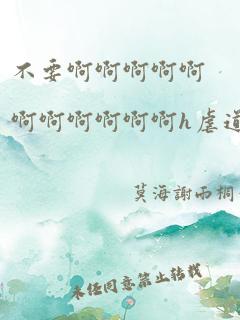 不要啊啊啊啊啊
啊啊啊啊啊啊h虐道
莫海謝雨桐
未经同意禁止转载